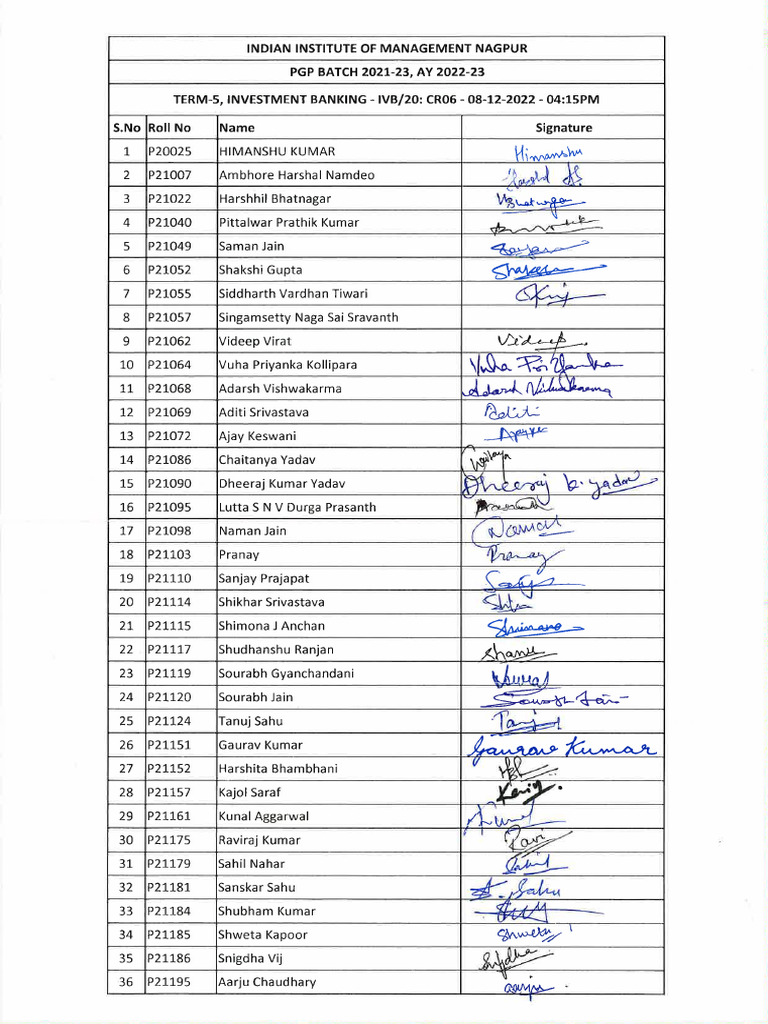 INDIAN INSTITUTE OF MANAGEMENT NAGPUR
PGP BATCH 2021-23, AY 2022-23
TERM-5, INVESTMENT BANKING - IVB/20: CR06 - 08-12-2022 - 04:15PM
S.No Roll No Name Signature
1 P20025 HIMANSHU KUMAR Himanshu
2 P21007 Ambhore Harshal Namdeo
3 P21022 Harshhil Bhatnagar
4 P21040 Pittalwar Prathik Kumar
5 P21049 Saman Jain
6 P21052 Shakshi Gupta
7 P21055 Siddharth Vardhan Tiwari
8 P21057 Singamsetty Naga Sai Sravanth
9 P21062 Videep Virat Videep
10 P21064 Vuha Priyanka Kollipara Vuha Priyanka
11 P21068 Adarsh Vishwakarma Adarsh Vishwakarma
12 P21069 Aditi Srivastava Aditi
13 P21072 Ajay Keswani
14 P21086 Chaitanya Yadav
15 P21090 Dheeraj Kumar Yadav Dheeraj k. yadav
16 P21095 Lutta S N V Durga Prasanth
17 P21098 Naman Jain Naman
18 P21103 Pranay Pranay
19 P21110 Sanjay Prajapat
20 P21114 Shikhar Srivastava
21 P21115 Shimona J Anchan
22 P21117 Shudhanshu Ranjan Shanu
23 P21119 Sourabh Gyanchandani
24 P21120 Sourabh Jain
25 P21124 Tanuj Sahu Tanuj
26 P21151 Gaurav Kumar Gaurav Kumar
27 P21152 Harshita Bhambhani
28 P21157 Kajol Saraf
29 P21161 Kunal Aggarwal
30 P21175 Raviraj Kumar Ravi
31 P21179 Sahil Nahar Sahil
32 P21181 Sanskar Sahu S. Sahu
33 P21184 Shubham Kumar
34 P21185 Shweta Kapoor Shweta
35 P21186 Snigdha Vij Snigdha
36 P21195 Aarju Chaudhary aarju